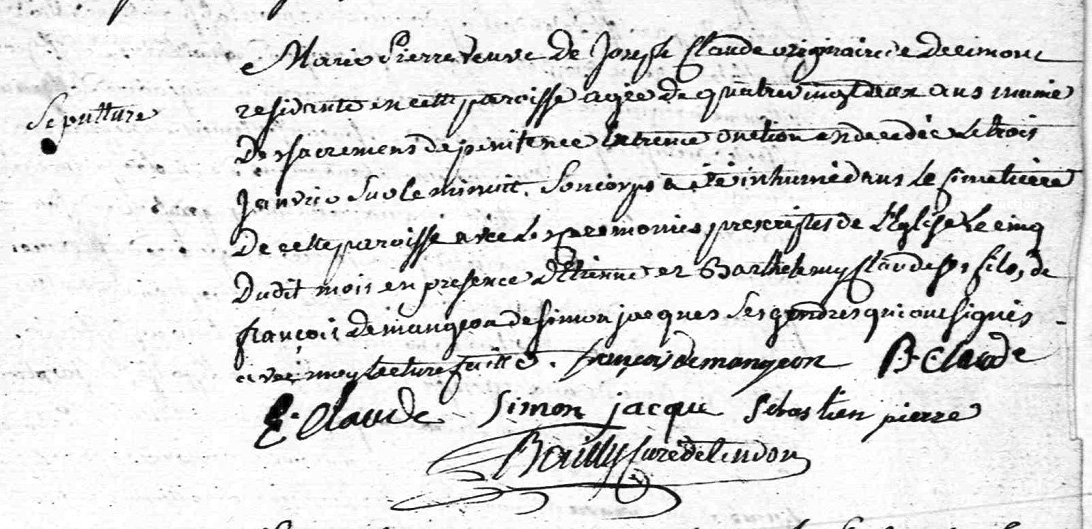 Marie Pierre veuve de Joseph Claude originaire de Decimont
Sepulture
residante en cette paroisse agée de quatre vingt deux ans munie
des sacremens de penitence Extreme onction est decedée le trois
Janvier sur le minuit. Son corps a été inhumé dans le Cimetiere
De cette paroisse avec les ceremonies prescriptes de L'Eglise Le cinq
Dudit mois en presence d'Etienne et Barthelemy Claude ses fils, de
françois demangeon de Simon jacques ses gendres qui ont signés
avec moy lecture faitte. françois demangeon B. Claude
E. Claude Simon jacque sebastien pierre
Bailly Curé de